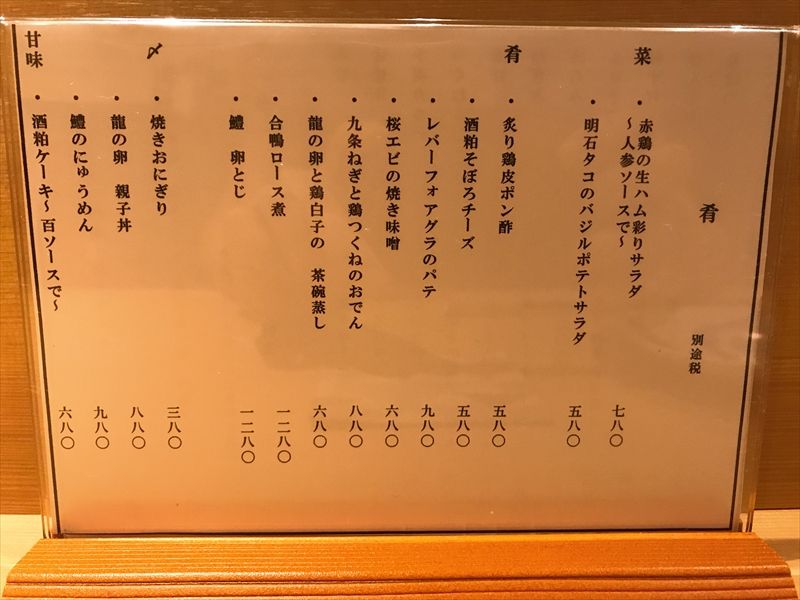 肴
別途税
菜
・赤鶏の生ハム彩りサラダ
〜人参ソースで〜
七八〇
・明石タコのバジルポテトサラダ
五八〇
肴
・炙り鶏皮ポン酢
五八〇
・酒粕そぼろチーズ
五八〇
・レバーフォアグラのパテ
九八〇
・桜エビの焼き味噌
六八〇
・九条ねぎと鶏つくねのおでん
八八〇
・龍の卵と鶏白子の 茶碗蒸し
六八〇
・合鴨ロース煮
一二八〇
・鱧 卵とじ
一二八〇
〆
・焼きおにぎり
三八〇
・龍の卵 親子丼
八八〇
・鱧のにゅうめん
九八〇
甘味
・酒粕ケーキ〜百ソースで〜
六八〇